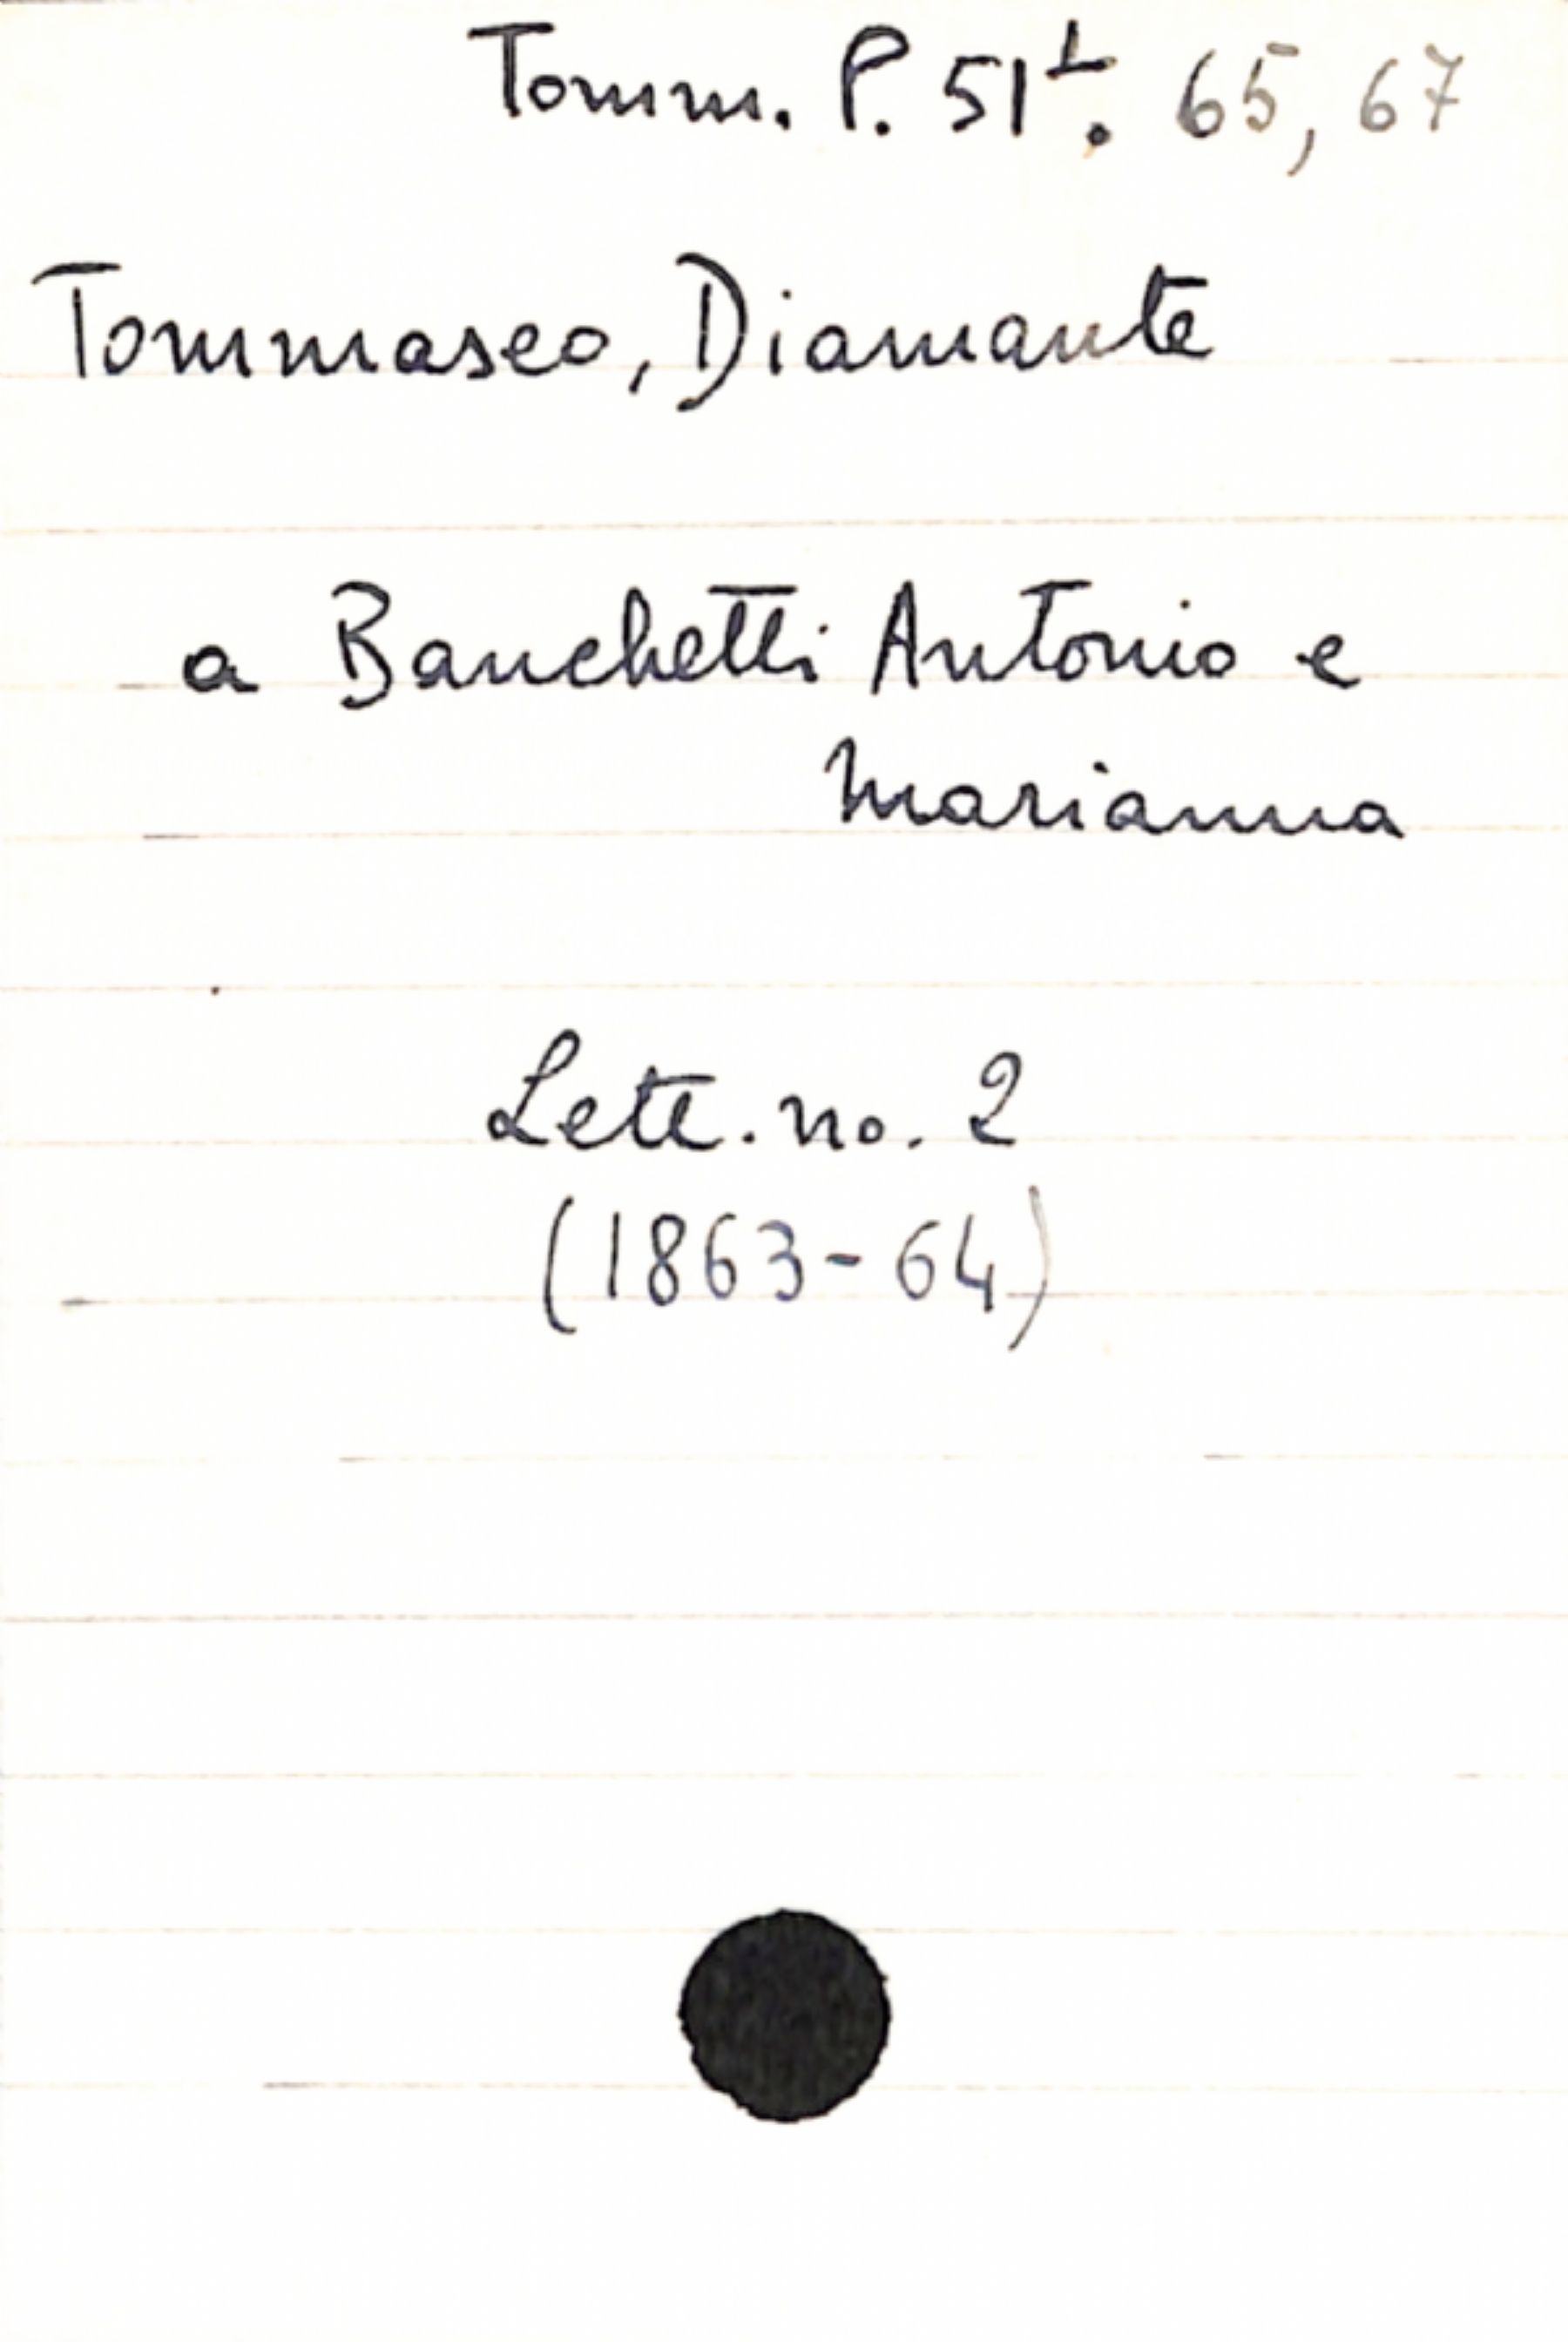 Tomm. P. 51⊥. 65, 67
Tommaseo, Diamante
a Banchetti Antonio e
Marianna
Lett. no. 2
(1863-64)